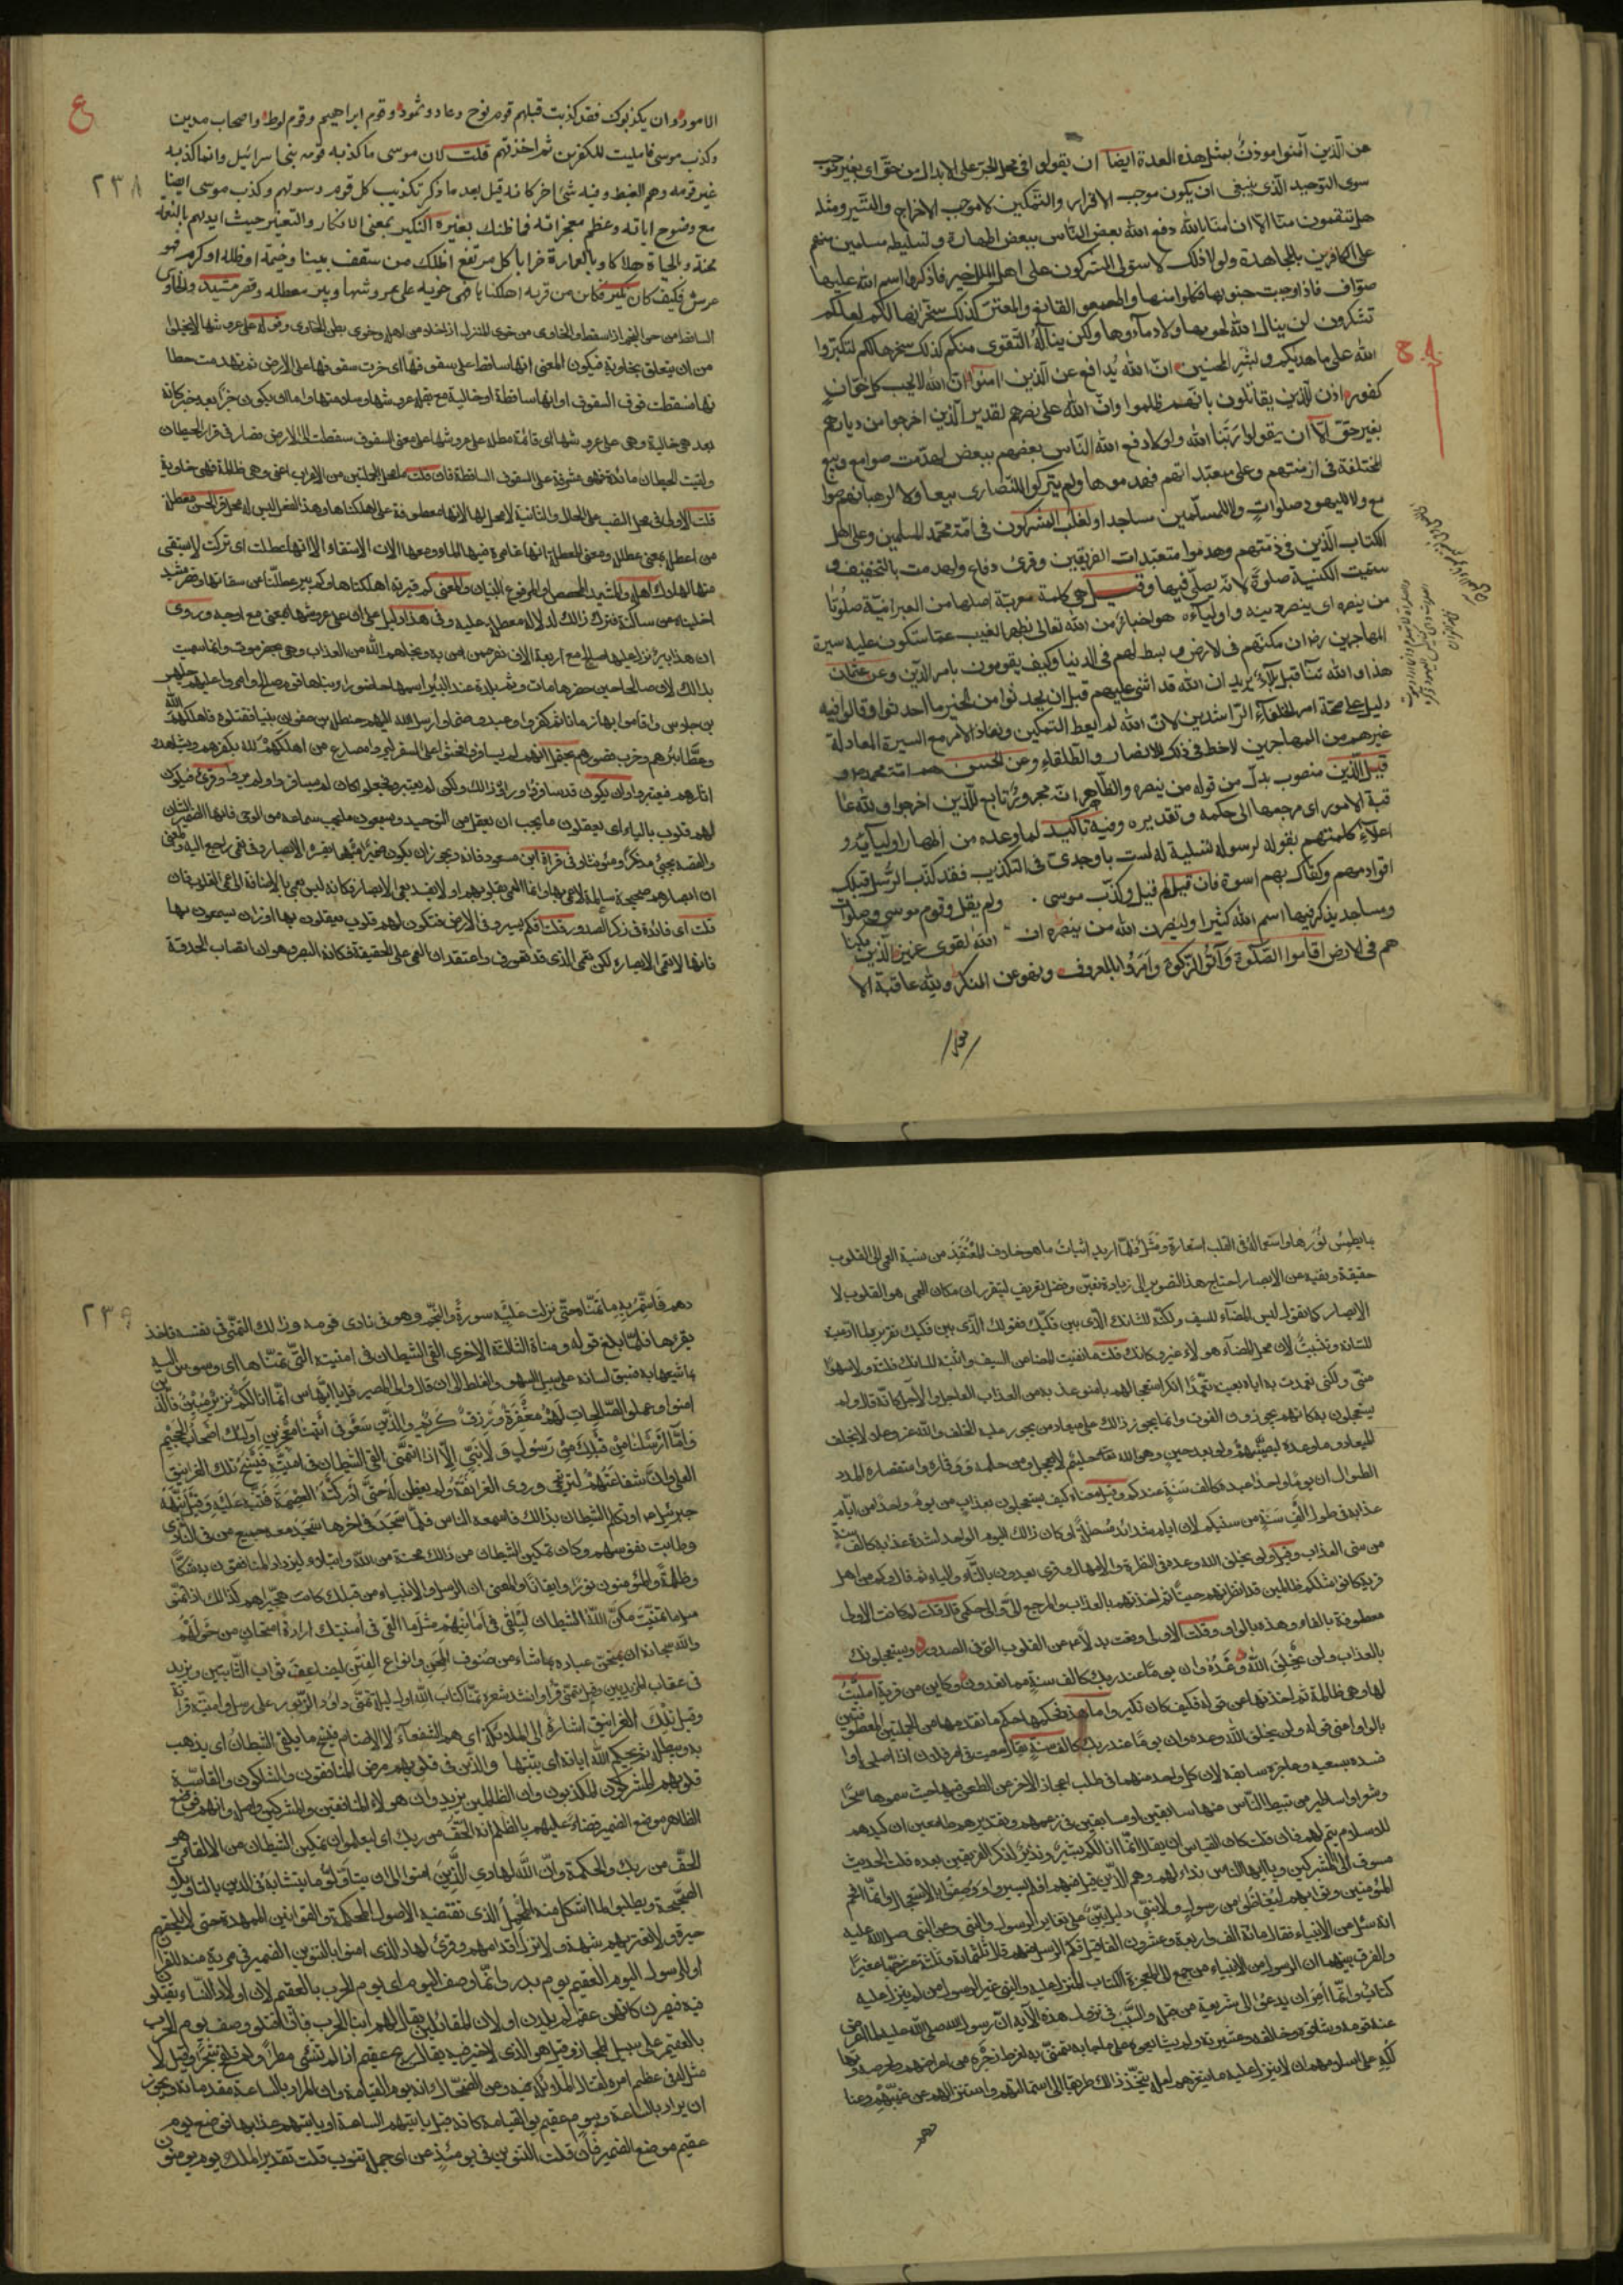 عن الذين آمنوا موذن بمثل هذه العدة ايضا ان يقولوا فى محل الجر على الابدال من حق اى بغير موجب
سوى التوحيد الذى ينبغى ان يكون موجب الاقرار والتمكين لا موجب الاخراج والتسيير ومثله
هل تنقمون منا الا ان امنا بالله دفع الله بعض الناس ببعض اظهاره وتسليطه مسلمين منهم
على الكافرين بالمجاهدة ولولا ذلك لاستولى المشركون على اهل الملل خير فاذكروا اسم الله عليها
صواف فاذا وجبت جنوبها فكلوا منها واطعموا القانع والمعتر كذلك سخرناها لكم لعلكم
تشكرون لن ينال الله لحومها ولا دماؤها ولكن يناله التقوى منكم كذلك سخرها لكم لتكبروا
الله على ما هديكم وبشر المحسنين ان الله يدافع عن الذين امنوا ان الله لا يحب كل خوان
كفور اذن للذين يقاتلون بانهم ظلموا وان الله على نصرهم لقدير الذين اخرجوا من ديارهم
بغير حق الا ان يقولوا ربنا الله ولولا دفع الله الناس بعضهم ببعض لهدمت صوامع وبيع
المختلفة فى ازمنتهم وعلى متعبداتهم فهدموها ولم يتركوا للنصارى بيعا ولا لرهبانهم صوا
مع ولا لليهود صلوات ولا للمسلمين مساجد او لغلب المشركون فى امة محمد المسلمين وعلى اهل
الكتاب الذين فى ذمتهم وهدموا متعبدات الفريقين وقرئ دفاع ولهدمت بالتخفيف و
سميت الكنيسة صلوة لانه يصلى فيها وقيل هى كلمة معربة اصلها من العبرانية صلوتا
من ينصره اى ينصر دينه واولياءه هو اخبار من الله تعالى بظهر الغيب عما ستكون عليه سيرة
المهاجرين رض ان مكنهم فى الارض وبسط لهم فى الدنيا وكيف يقومون بامر الدين وعن عثمان
هذا والله ثناء قبل بلاء يريد ان الله قد اثنى عليهم قبل ان يحدثوا من الخير ما احدثوا وقالوا فيه
دليل على صحة امر الخلفاء الراشدين لان الله لم يعط التمكين ونفاذ الامر مع السيرة العادلة
غيرهم من المهاجرين لا حظ فى ذلك للانصار والطلقاء وعن الحسن هم امة محمد
قيل الذين منصوب بدل من قوله من ينصره والظاهر انه مجرور تابع للذين اخرجوا ولله عا
قبة الامور اى مرجعها الى حكمه وتقديره وفيه تاكيد لما وعده من اظهار اوليائه و
اعلاء كلمتهم يقول لرسوله تسلية له لست باوحدى فى التكذيب فقد كذب الرسل قبلك
اقوامهم وكفاك بهم اسوة فان قيل لم قيل وكذب موسى ولم يقل وقوم موسى وصلوات
ومساجد يذكر فيها اسم الله كثيرا ولينصرن الله من ينصره ان الله لقوى عزيز الذين ان مكنا
هم فى الارض اقاموا الصلوة وآتوا الزكوة وامروا بالمعروف ونهوا عن المنكر ولله عاقبة الا
ع
٢٣٨
الامور وان يكذبوك فقد كذبت قبلهم قوم نوح وعاد وثمود وقوم ابراهيم وقوم لوط واصحاب مدين
وكذب موسى فامليت للكفرين ثم اخذتهم قلت لان موسى ما كذبه قومه بنى اسرائيل وانما كذبه
غير قومه وهم القبط وفيه شئ اخر كانه قيل بعد ما ذكر تكذيب كل قوم رسولهم وكذب موسى ايضا
مع وضوح اياته وعظم معجزاته فما ظنك بغيره النكير بمعنى الانكار والتغيير حيث ابدلهم بالنعمة
محنة وبالحياة هلاكا وبالعمارة خرابا كل مرتفع اظلك من سقف بيت او خيمة او ظلة او كرم فهو
عرش فكيف كان نكير فكاين من قرية اهلكناها فهى خاوية على عروشها وبئر معطلة وقصر مشيد والخاوى
الساقط من خوى النجم اذا سقط او الخاوى من خوى المنزل اذا خلا من اهله وخوى بطن الحاوى وقوله على عروشها لا يخلوا
من ان يتعلق بخاوية فيكون المعنى انها ساقطة على سقوفها اى خرت سقوفها على الارض ثم تهدمت حيطا
نها فسقطت فوق السقوف او انها ساقطة او خالية مع بقاء عروشها وسلامتها واما ان يكون خبرا بعد خبر كانه
بعد هى خالية وهى على عروشها اى قائمة مطلة على عروشها على معنى السقوف سقطت الى الارض فصار فى قرار الحيطان
وبقيت الحيطان مائلة فهى مشرفة على السقوف الساقطة فان قلت ما محل الجملتين من الاعراب اعنى وهى ظالمة فهى خاوية
قلت الاولى فى محل النصب على الحال والثانية لا محل لها لانها معطوفة على اهلكناها وهذا الفعل ليس له محل قرا الحسن معطلة
من اعطله بمعنى عطله ومعنى المعطلة انها عامرة فيها الماء ومعها الات الاستقاء الا انها عطلت اى تركت لا يستقى
منها لهلاك اهلها والمشيد المجصص او المرفوع البنيان والمعنى كم قرية اهلكناها وكم بئر عطلنا من سقاتها وقصر مشيد
اخليناه من ساكنه فترك ذلك لدلالة معطلة عليه وفى هذا دليل على ان على عروشها بمعنى مع اوجه وروى
ان هذا بئر نزل عليها صالح مع اربعة الاف نفر ممن امن به ونجاهم الله من العذاب وهى بحضرموت وانما سميت
بذلك لان صالحا حين حضرها مات وثم بلدة عند البئر اسمها حاضورا بناها قوم صالح وامروا عليهم جلهس
بن جلاس واقاموا بها زمانا ثم كفروا وعبدوا صنما وارسل الله اليهم حنظلة بن صفوان نبيا فقتلوه فاهلكهم الله
وعطل بئرهم وخرب قصورهم يحتمل انهم لم يسافروا فحثوا على السفر ليروا مصارع من اهلكهم الله بكفرهم ويشاهدوا
اثارهم فيعتبروا وان يكون قد سافروا وراوا ذلك ولكن لم يعتبروا فجعلوا كان لم يسافروا ولم يروا وقرئ فيكون
لهم قلوب بالياء اى يعقلون ما يجب ان يعقل من التوحيد ويسمعون ما يجب سماعه من الوحى فانها الضمير للشان
والقصة يجئ مذكرا ومؤنثا وفى قراءة ابن مسعود فانه ويجوز ان يكون ضميرا مبهما يفسره الابصار وفى تعمى راجع اليه والمعنى
ان ابصارهم صحيحة سالمة لا عمى بها وانما العمى بقلوبهم او لا يعتد بعمى الابصار فكانه ليس بعمى بالاضافة الى عمى القلوب فان
قلت اى فائدة فى ذكر الصدور قلت افلم يسيروا فى الارض فتكون لهم قلوب يعقلون بها او اذان يسمعون بها
فانها لا تعمى الابصار ولكن تعمى الذى قد تعورف واعتقد ان العمى على الحقيقة مكانه البصر وهو ان تصاب الحدقة
بما يطمس نورها واستعماله فى القلب استعارة ومثل فلما اريد اثبات ما هو خلاف المعتقد من نسبة العمى الى القلوب
حقيقة ونفيه من الابصار احتاج هذا التصوير الى زيادة تعيين وفضل تعريف ليتقرر ان مكان العمى هو القلوب لا
الابصار كما تقول ليس المضاء للسيف ولكنه للسانك الذى بين فكيك فقولك الذى بين فكيك تقرير لما ادعيته
للسانه وتثبيت لان محل المضاء هو لا غير وكانك قلت ما نفيت المضاء من السيف واثبته للسانك فلتة ولا سهوا
منى ولكنى تعمدت به اياه بعينه تعمدا انكر استعجالهم بالمتوعد به من العذاب العاجل والآجل كانه قال ولم
يستعجلون به كانهم يجوزون الفوت وانما يجوز ذلك على ميعاد من يجوز عليه الخلف والله عز وعلا لا يخلف
الميعاد وما وعده ليصيبنهم ولو بعد حين وهو الله تعالى حليم لا يعجل ومن حلمه ووقاره واستقصاره المدد
الطوال ان يوما واحدا عنده كالف سنة عندكم وقيل معناه كيف يستعجلون بعذاب من يوم واحد من ايام
عذابه فى طول الف سنة من سنيكم لان ايام شدائد مستطالة او كان ذلك اليوم الواحد لشدة عذابه كالف سنة
من سنى العذاب وقيل ولن يخلف الله وعده فى النظرة والامهال وقرئ يعدون بالتاء والياء ثم قال وكم من اهل
قرية كانوا مثلكم ظالمين قد انظرتهم حينا ثم اخذتهم بالعذاب والمرجع الى والى حكمى فان قلت لم كانت الاولى
معطوفة بالفاء وهذه بالواو قلت الاولى وقعت بدلا عن القلوب التى فى الصدور ويستعجلونك
بالعذاب ولن يخلف الله وعده وان يوما عند ربك كالف سنة مما تعدون وكاين من قرية امليت
لها وهى ظالمة ثم اخذتها من قوله فكيف كان نكير واما هذه فحكمها حكم ما تقدمها من الجملتين المعطوفتين
بالواو اعنى قوله ولن يخلف الله وعده وان يوما عند ربك كالف سنة يقال سعيت فى امر فلان اذا اصلحه او ا
فسده بسعيه وعاجزه سابقه لان كل واحد منهما فى طلب اعجاز الاخر عن الطعن فيها حيث سموها سحرا
وشعرا واساطير من تثبيط الناس منها سابقين او مسابقين فى زعمهم وتقديرهم طامعين ان كيدهم
للاسلام يتم لهم فان قلت كان القياس ان يقال انما انا لكم بشير ونذير لذكر الفريقين بعده قلت الحديث
مسوق الى المشركين ويا ايها الناس نداء لهم وهم الذين قيل فيهم افلم يسيروا ووصفوا بالاستعجال وانما اقحم
المؤمنين وثوابهم ليغاظوا من رسول ولا نبى دليل بين على تغاير الرسول والنبى وعن النبى صلى الله عليه
انه سئل من الانبياء فقال مائة الف واربعة وعشرون الفا قيل فكم الرسل منهم قال ثلثمائة وثلثة عشر جما غفيرا
والفرق بينهما ان الرسول من الانبياء من جمع الى المعجزة الكتاب المنزل عليه والنبى غير الرسول من لم ينزل عليه
كتاب وانما امر ان يدعو الى شريعة من قبله والسبب فى نزول هذه الآية ان رسول الله صلى الله عليه لما اعرض
عنه قومه وشاقوه وخالفه عشيرته ولم يشايعوه على ما جاء به تمنى به لفرط ضجره من اعراضهم ولحرصه وتها
لكه على اسلامهم ان لا ينزل عليه ما ينفرهم لعله يتخذ ذلك طريقا الى استمالتهم واستنزالهم عن غيهم وعنا
دهم
٢٣٩
دهم فاستمر به ما تمناه حتى نزلت عليه سورة والنجم وهو فى نادى قومه وذلك التمنى فى نفسه فاخذ
يقرءها فلما بلغ قوله ومناة الثالثة الاخرى القى الشيطان فى امنيته التى تمناها اى وسوس اليه
بما شيعها به فسبق لسانه على سبيل السهو والغلط الى ان قال والى المصير قل يا ايها الناس انما انا لكم نذير مبين فالذين
امنوا وعملوا الصالحات لهم مغفرة ورزق كريم والذين سعوا فى آياتنا معجزين اولئك اصحاب الجحيم
وما ارسلنا من قبلك من رسول ولا نبى الا اذا تمنى القى الشيطان فى امنيته فينسخ تلك الغرانيق
العلى وان شفاعتهم لترتجى وروى الغرانقة ولم يفطن له حتى ادركته العصمة فتنبه عليه وقيل نبهه
جبرئيل ع م او تكلم الشيطان بذلك فاسمعه الناس فلما سجد فى اخرها سجد معه جميع من فى النادى
وطابت نفوسهم وكان تمكين الشيطان من ذلك محنة من الله وابتلاء ليزداد المنافقون به شكا
وظلمة والمؤمنون نورا وايقانا والمعنى ان الرسل والانبياء من قبلك كانت هجيراهم كذلك اذا تمنوا
مثل ما تمنيت مكن الله الشيطان ليلقى فى امانيهم مثل ما القى فى امنيتك ارادة امتحان من حولهم
والله سبحانه ان يمتحن عباده بما شاء من صنوف المحن وانواع الفتن ليضاعف ثواب الثابتين ويزيد
فى عقاب المذبذبين وقيل تمنى قرا وانشد شعر تمنى كتاب الله اول ليلة تمنى داود الزبور على رسل وامنيته قراءته
وقيل تلك الغرانيق اشارة الى الملائكة اى هم الشفعاء لا الاصنام فينسخ ما يلقى الشيطان اى يذهب
به ويبطله ثم يحكم الله اياته اى يثبتها والذين فى قلوبهم مرض المنافقون والشاكون والقاسية
قلوبهم المشركون المكذبون وان الظالمين يريد وان هؤلاء المنافقين والمشركين واصله وانهم فوضع
الظاهر موضع الضمير قضاء عليهم بالظلم انه الحق من ربك اى ليعلموا ان تمكين الشيطان من الالقاء هو
الحق من ربك والحكمة وان الله لهادى الذين امنوا الى ان يتاولوا ما يتشابه فى الدين بالتاويلات
الصحيحة ويطلبوا لما اشكل منه المحمل الذى تقتضيه الاصول المحكمة والقوانين الممهدة حتى لا يلحقهم
حيرة ولا تعتريهم شبهة ولا تزل اقدامهم وقرئ لهاد الذى امنوا بالتنوين الضمير فى مرية منه للقران
او للرسول اليوم العقيم يوم بدر وانما وصف اليوم اى يوم الحرب بالعقيم لان اولاد النساء يقتلون
فيه فيصرن كانهن عقم لم يلدن او لان المقاتلين يقال لهم ابناء الحرب فاذا قتلوا وصف يوم الحرب
بالعقيم على سبيل المجاز وقيل هو الذى لا خير فيه يقال ريح عقيم اذا لم تنشئ مطرا ولم تلقح شجرا وقيل لا
مثل له فى عظم امره لقتال الملائكة فيه وعن الضحاك انه يوم القيامة وان المراد بالساعة مقدماته ويجوز
ان يراد بالساعة ويوم عقيم يوم القيامة كانه قيل ياتيهم الساعة او ياتيهم عذابها فوضع يوم
عقيم موضع الضمير فان قلت التنوين فى يومئذ عن اى جملة تنوب قلت تقديره الملك يوم يومنون